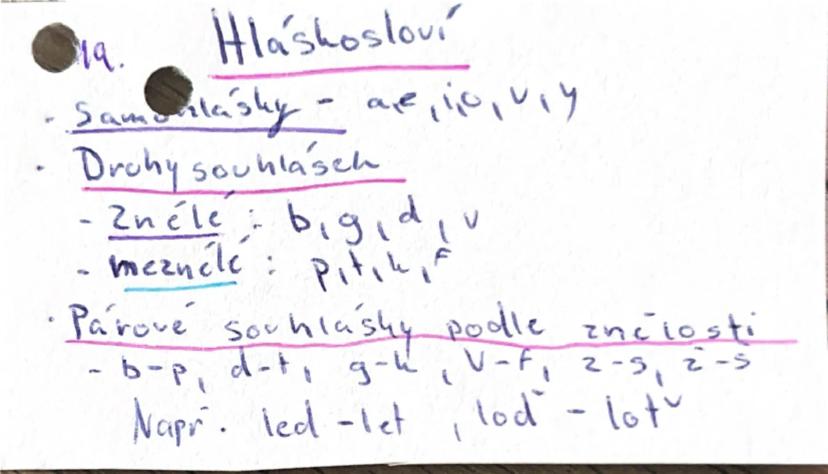 19. Hláskosloví
· Samohlásky - a,e,i,o,u,y
· Druhy souhlásek
- Znělé : b, g, d, v
- neznělé : p, t, k, f
· Párové souhlásky podle znělosti
- b-p, d-t, g-k, v-f, z-s, ž-s
Např. led - let , loď - loť